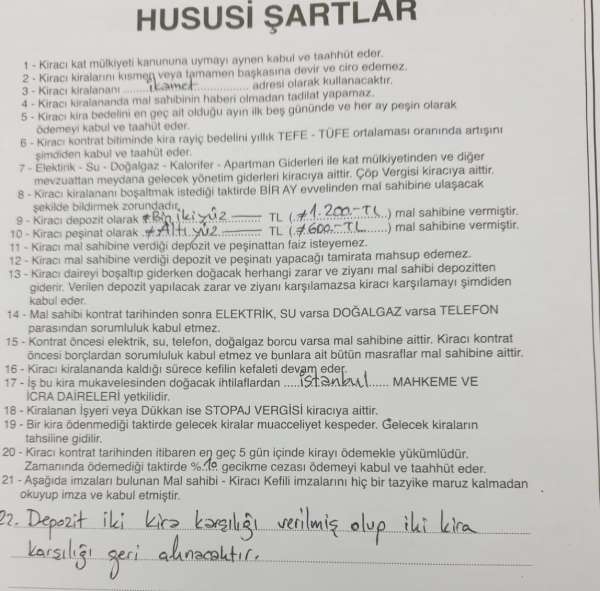 HUSUSİ ŞARTLAR
1 - Kiracı kat mülkiyeti kanununa uymayı aynen kabul ve taahhüt eder.
2 - Kiracı kiralarını kısmen veya tamamen başkasına devir ve ciro edemez.
3 - Kiracı kiralananı ........ikamet................ adresi olarak kullanacaktır.
4 - Kiracı kiralananda mal sahibinin haberi olmadan tadilat yapamaz.
5 - Kiracı kira bedelini en geç ait olduğu ayın ilk beş gününde ve her ay peşin olarak
ödemeyi kabul ve taahüt eder.
6 - Kiracı kontrat bitiminde kira rayiç bedelini yıllık TEFE - TÜFE ortalaması oranında artışını
şimdiden kabul ve taahüt eder.
7 - Elektirik - Su - Doğalgaz - Kalorifer - Apartman Giderleri ile kat mülkiyetinden ve diğer
mevzuattan meydana gelecek yönetim giderleri kiracıya aittir. Çöp Vergisi kiracıya aittir.
8 - Kiracı kiralananı boşaltmak istediği taktirde BİR AY evvelinden mal sahibine ulaşacak
şekilde bildirmek zorundadır.
9 - Kiracı depozit olarak ≠Biniki yüz —— TL (≠1.200.-TL) mal sahibine vermiştir.
10 - Kiracı peşinat olarak .≠Altıyüz —— TL (≠600.-TL......) mal sahibine vermiştir.
11 - Kiracı mal sahibine verdiği depozit ve peşinattan faiz isteyemez.
12 - Kiracı mal sahibine verdiği depozit ve peşinatı yapacağı tamirata mahsup edemez.
13 - Kiracı daireyi boşaltıp giderken doğacak herhangi zarar ve ziyanı mal sahibi depozitten
giderir. Verilen depozit yapılacak zarar ve ziyanı karşılamazsa kiracı karşılamayı şimdiden
kabul eder.
14 - Mal sahibi kontrat tarihinden sonra ELEKTRİK, SU varsa DOĞALGAZ varsa TELEFON
parasından sorumluluk kabul etmez.
15 - Kontrat öncesi elektrik, su, telefon, doğalgaz borcu varsa mal sahibine aittir. Kiracı kontrat
öncesi borçlardan sorumluluk kabul etmez ve bunlara ait bütün masraflar mal sahibine aittir.
16 - Kiracı kiralananda kaldığı sürece kefilin kefaleti devam eder.
17 - İş bu kira mukavelesinden doğacak ihtilaflardan .....istanbul...... MAHKEME VE
İCRA DAİRELERİ yetkilidir.
18 - Kiralanan İşyeri veya Dükkan ise STOPAJ VERGİSİ kiracıya aittir.
19 - Bir kira ödenmediği taktirde gelecek kiralar muacceliyet kespeder. Gelecek kiraların
tahsiline gidilir.
20 - Kiracı kontrat tarihinden itibaren en geç 5 gün içinde kirayı ödemekle yükümlüdür.
Zamanında ödemediği taktirde %.10 gecikme cezası ödemeyi kabul ve taahhüt eder.
21 - Aşağıda imzaları bulunan Mal sahibi - Kiracı Kefili imzalarını hiç bir tazyike maruz kalmadan
okuyup imza ve kabul etmiştir.
22. Depozit iki kira karşılığı verilmiş olup iki kira
karşılığı geri alınacaktır.